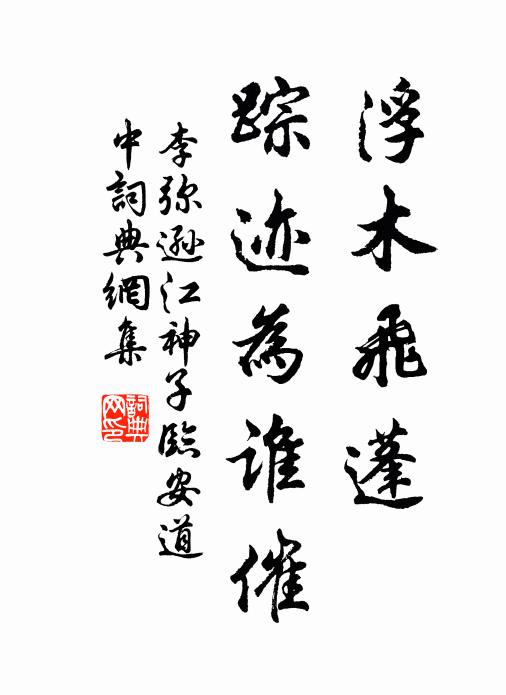 浮木飛蓬
踪迹為誰催
李弥遜江神子臨安道
中詞典網集
詞典
网印